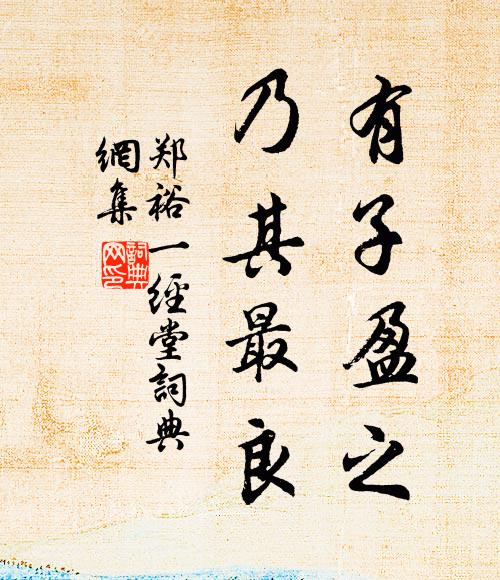 有子盈之
乃其最良
郑裕一经堂詞典
網集
詞典
网印